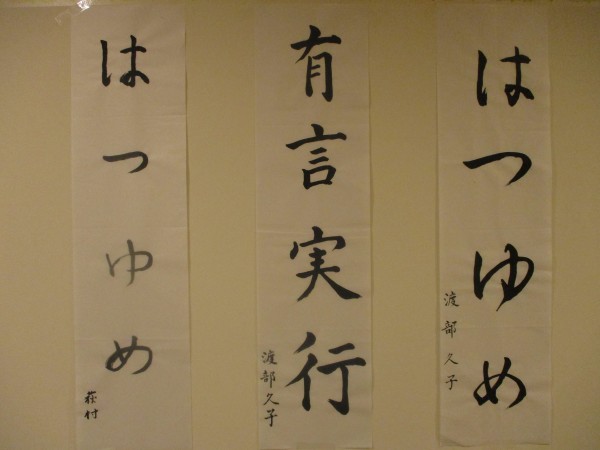 はつゆめ
渡部久子
有言実行
渡部久子
はつゆめ